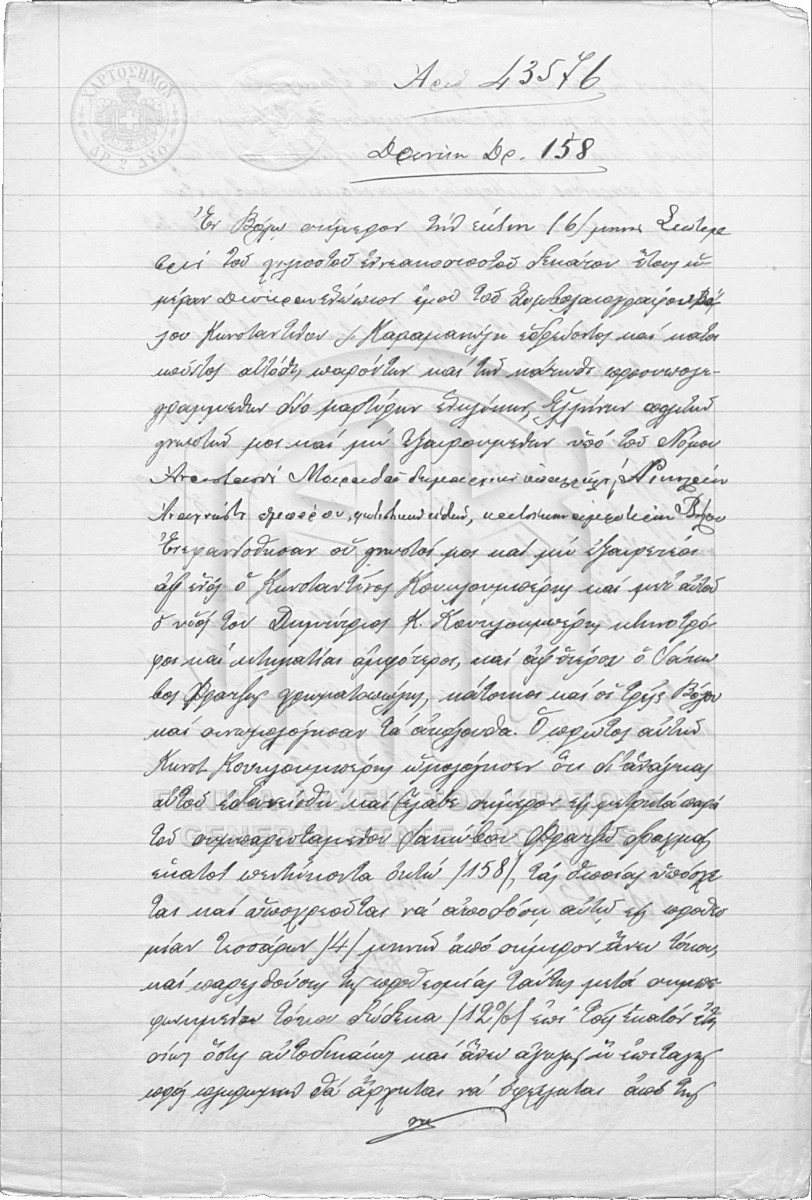 ΧΑΡΤΟΣΗΜΟΝ
ΔΡ. 2. ΔΥΟ
Αριθ 43576
Δάνειον Δρ. 158
Ἐν Βόλῳ σήμερον τὴν ἕκτην /6/ μηνὸς Σεπτεμ
βρίου τοῦ χιλιοστοῦ ἐννεακοσιοστοῦ δεκάτου ἔτους ἡ-
μέραν Δευτέραν ἐνώπιον ἐμοῦ τοῦ Συμβολαιογράφου Βό-
λου Κωνσταντίνου Καραμανώλη ἑδρεύοντος καὶ κατοι
κοῦντος αὐτόθι, παρόντων καὶ τῶν κάτωθι προσυπογε-
γραμμένων δύο μαρτύρων ἐνηλίκων, Ἑλλήνων πολιτῶν
γνωστῶν μοι καὶ μὴ ἐξαιρουμένων ὑπὸ τοῦ Νόμου
κατοίκων Βόλου
Ἐνεφανίσθησαν οἱ γνωστοί μοι καὶ μὴ ἐξαιρετέοι
ἀφ' ἑνὸς ὁ Κωνσταντῖνος Κουκλουμπέρης καὶ μετ' αὐτοῦ
ὁ υἱός του Δημήτριος Κ. Κουκλουμπέρης κτηνοτρό-
φοι καὶ κτηματίαι ἀμφότεροι, καὶ ἀφ' ἑτέρου ὁ Ἰάκω
βος Φραντζῆς χρωματοπώλης, κάτοικοι καὶ οἱ τρεῖς Βόλου
καὶ συνωμολόγησαν τὰ ἀκόλουθα. Ὁ πρῶτος αὐτῶν
Κωνστ Κουκλουμπέρης ὡμολόγησεν ὅτι δι' ἀνάγκας
αὐτοῦ ἐδανείσθη καὶ ἔλαβε σήμερον εἰς μετρητὰ παρὰ
τοῦ συμπαρισταμένου Ἰακώβου Φραντζῆ δραχμὰς
ἑκατὸν πεντήκοντα ὀκτὼ /158/, τὰς ὁποίας ὑπόσχε
ται καὶ ὑποχρεοῦται νὰ ἀποδώσῃ αὐτῷ εἰς προθεσ
μίαν τεσσάρων /4/ μηνῶν ἀπὸ σήμερον ἄνευ τόκου,
καὶ παρελθούσης τῆς προθεσμίας ταύτης μετὰ συμπε-
φωνημένου τόκου δώδεκα /12%/ ἐπὶ τοῖς ἑκατὸν ἐτη
σίως ὅστις αὐτοδικαίως καὶ ἄνευ ἀγωγῆς ἢ ἐπιταγῆς
πρὸς πληρωμὴν θὰ ἄρχηται νὰ ὀφείληται ἀπὸ τῆς
ΓΕΝΙΚΑ ΑΡΧΕΙΑ ΤΟΥ ΚΡΑΤΟΥΣ
GENERAL STATE ARCHIVES